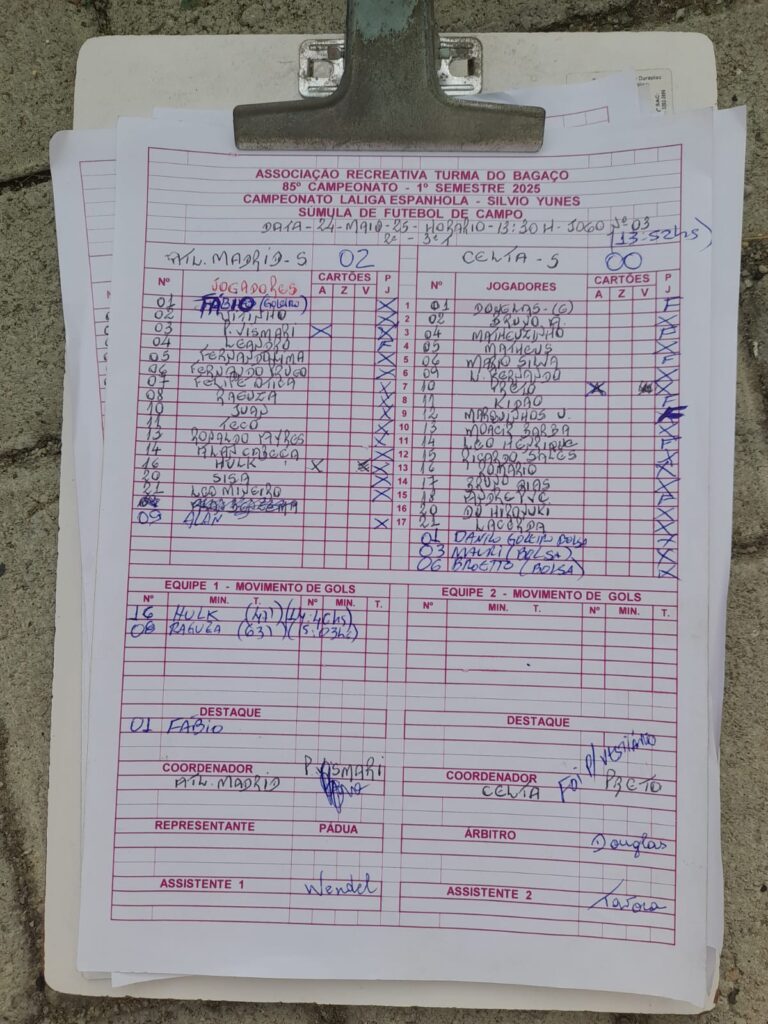 ASSOCIAÇÃO RECREATIVA TURMA DO BAGAÇO
85º CAMPEONATO - 1º SEMESTRE 2025
CAMPEONATO LALIGA ESPANHOLA - SILVIO YUNES
SÚMULA DE FUTEBOL DE CAMPO
DATA-24-MAIO-25-HORARIO-13:30H-JOGO Nº03
2ª - 3ª (13:52hs)
ATL. MADRID-S 02 CELTA-S 00
Nº JOGADORES CARTÕES P J Nº JOGADORES CARTÕES P J
A Z V A Z V
01 FÁBIO (GOLEIRO) X 1 01 DOUGLAS-(G) F
02 VITINHO X 2 02 BRUNO A.
03 P. VISMARI X X 3 04 MATHEUZINHO
04 LEANDRO F 4 05 MATHEUS
05 FERNANDO LIMA X 5 06 MARIO SILVA
06 FERNANDO HUGO X 6 09 N. FERNANDO
07 FELIPE OTICA X 7 10 PRETO X
08 RAGUZA X 8 11 KIDÃO
10 JUAN X 9 12 MARQUINHOS V. F
11 TECO X 10 13 MOACIR BARBA
13 RONALDO TAYRES X 11 14 LEO HENRIQUE
14 ALAN CABEÇA 12 15 RICARDO SALES
16 HULK X X 13 16 ROMARIO
20 SISA X 14 17 BRUNO DIAS
21 LEO MINEIRO X 15 18 ANDREY V.C
16 20 DU HIROYUKI
09 ALAN X 17 21 LACERDA
01 DANILO GOLEIRO BOLSA X
03 MAURI (BOLSA) X
06 BROETTO (BOLSA) X
EQUIPE 1 - MOVIMENTO DE GOLS EQUIPE 2 - MOVIMENTO DE GOLS
Nº MIN. T. Nº MIN. T. Nº MIN. T. Nº MIN. T.
16 HULK (41') (14:40hs)
08 RAGUZA (63') (15:03hs)
DESTAQUE DESTAQUE
01 FÁBIO
FOI P/ VESTIÁRIO
COORDENADOR P. VISMARI COORDENADOR PRETO
ATL. MADRID CELTA
REPRESENTANTE PÁDUA ÁRBITRO Douglas
ASSISTENTE 1 Wendel ASSISTENTE 2 Tavora